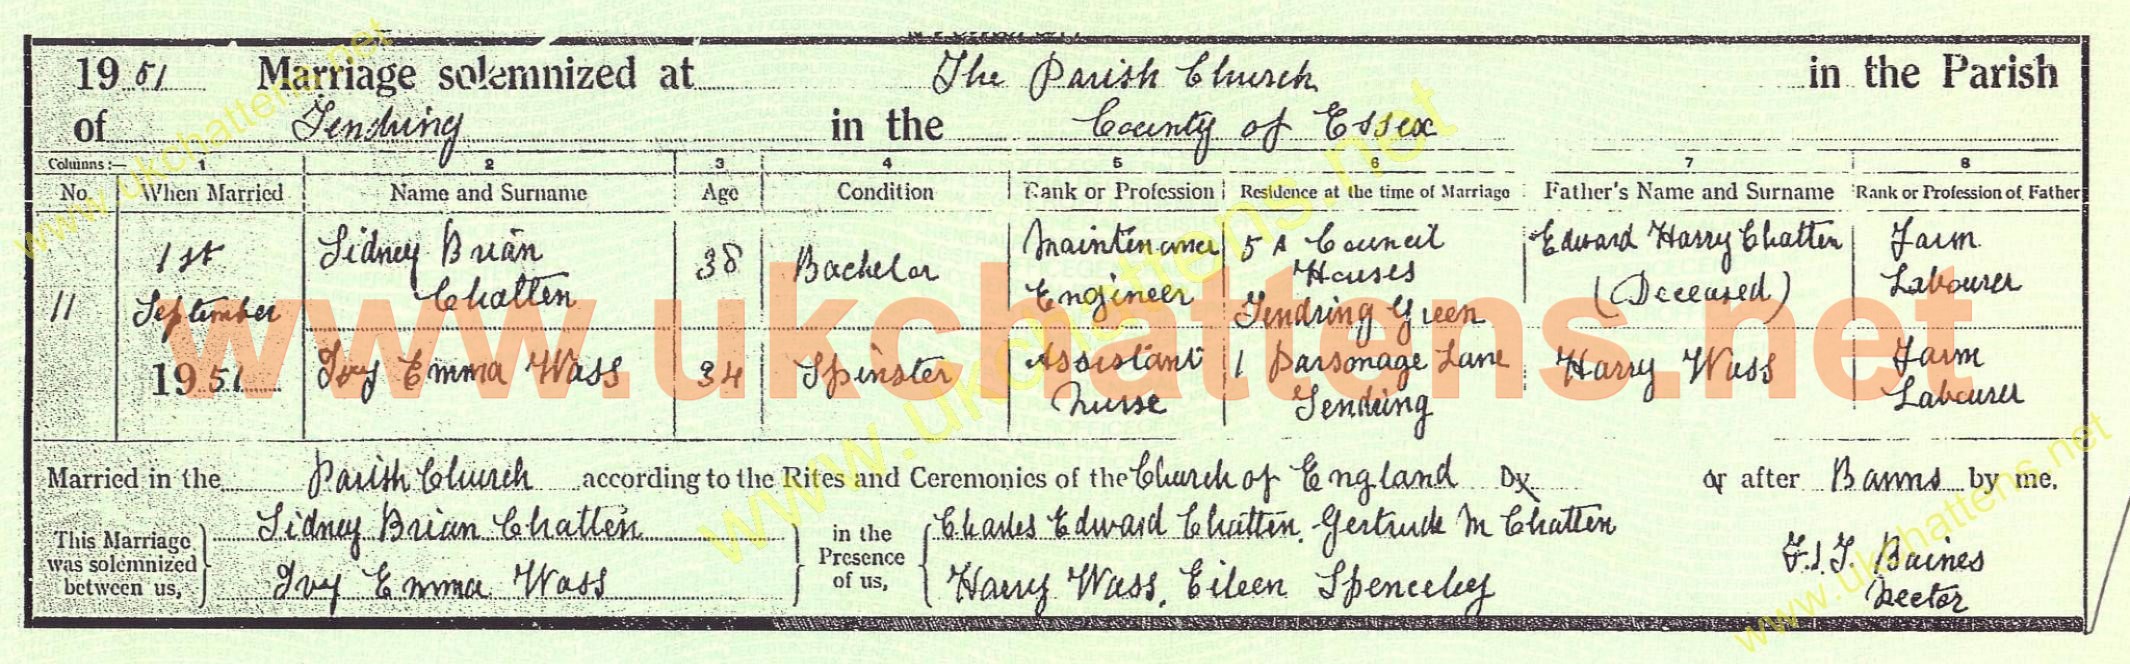 1951 Marriage solemnized at The Parish Church in the Parish
of Tendring in the County of Essex
Columns :— 1 2 3 4 5 6 7 8
No. When Married Name and Surname Age Condition Rank or Profession Residence at the time of Marriage Father's Name and Surname Rank or Profession of Father
11
1st
September
1951
Sidney Brian
Chatten
38
Bachelor
Maintenance
Engineer
5A Council
Houses
Tendring Green
Edward Harry Chatten
(Deceased)
Farm
Labourer
Ivy Emma Wass
34
Spinster
Assistant
Nurse
1 Parsonage Lane
Tendring
Harry Wass
Farm
Labourer
Married in the Parish Church according to the Rites and Ceremonies of the Church of England by or after Banns by me,
This Marriage
was solemnized
between us,
Sidney Brian Chatten
Ivy Emma Wass
in the
Presence
of us,
Charles Edward Chatten, Gertrude M Chatten
Harry Wass, Eileen Spenceley
F.S.T. Baines
Rector
www.ukchattens.net
www.ukchattens.net
www.ukchattens.net
www.ukchattens.net